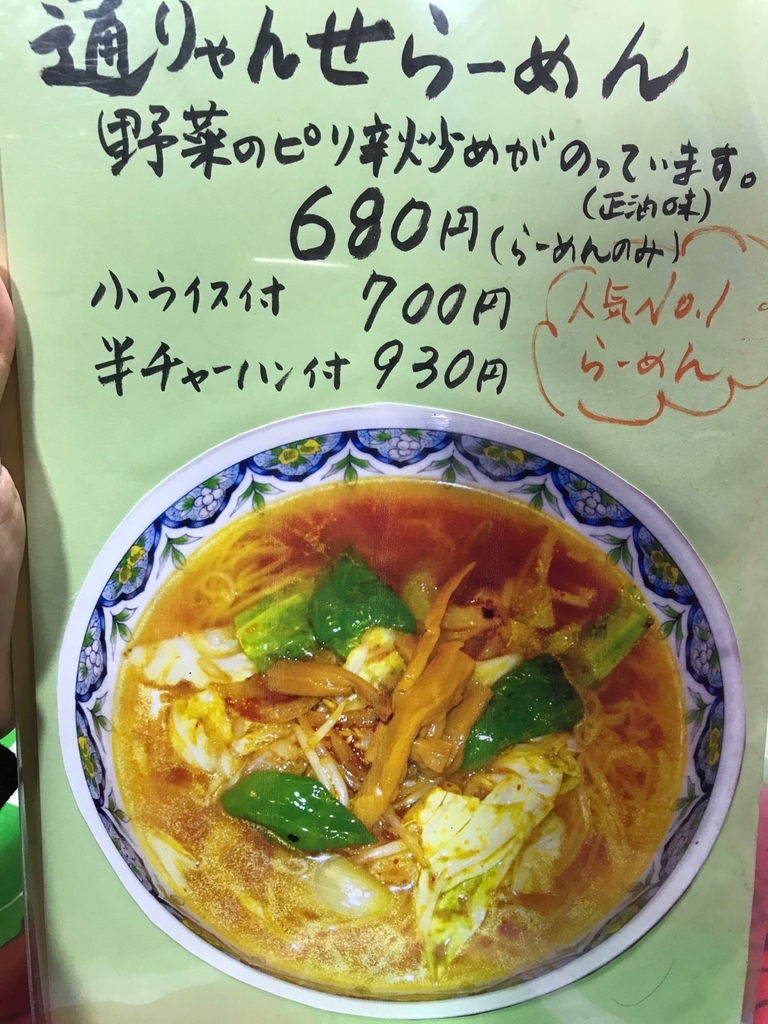 通りゃんせらーめん
野菜のピリ辛炒めがのっています。
(正油味)
680円(らーめんのみ)
小ライス付 700円
半チャーハン付 930円
人気No.1
らーめん